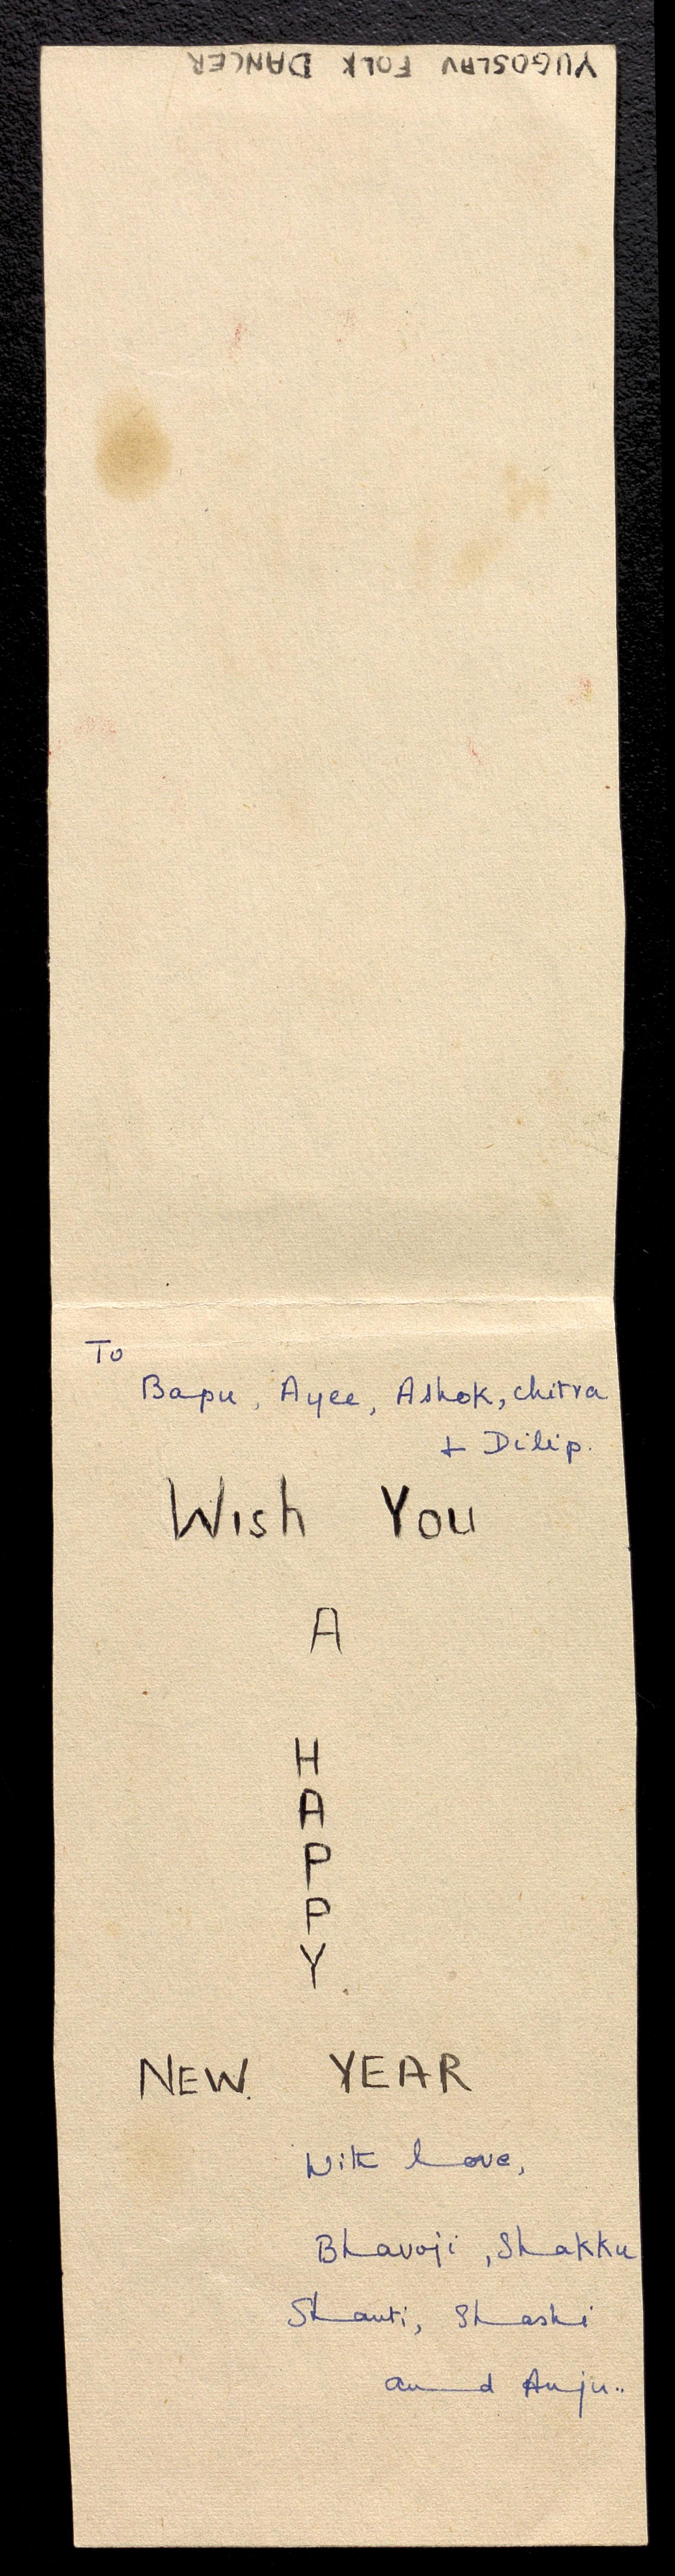 YUGOSLAV FOLK DANCER
To
Bapu, Ayee, Ashok, chitra
+ Dilip.
Wish You
A
H
A
P
P
Y.
NEW. YEAR
With Love,
Bhavoji, Shakku
Shanti, Shashi
and Anju..